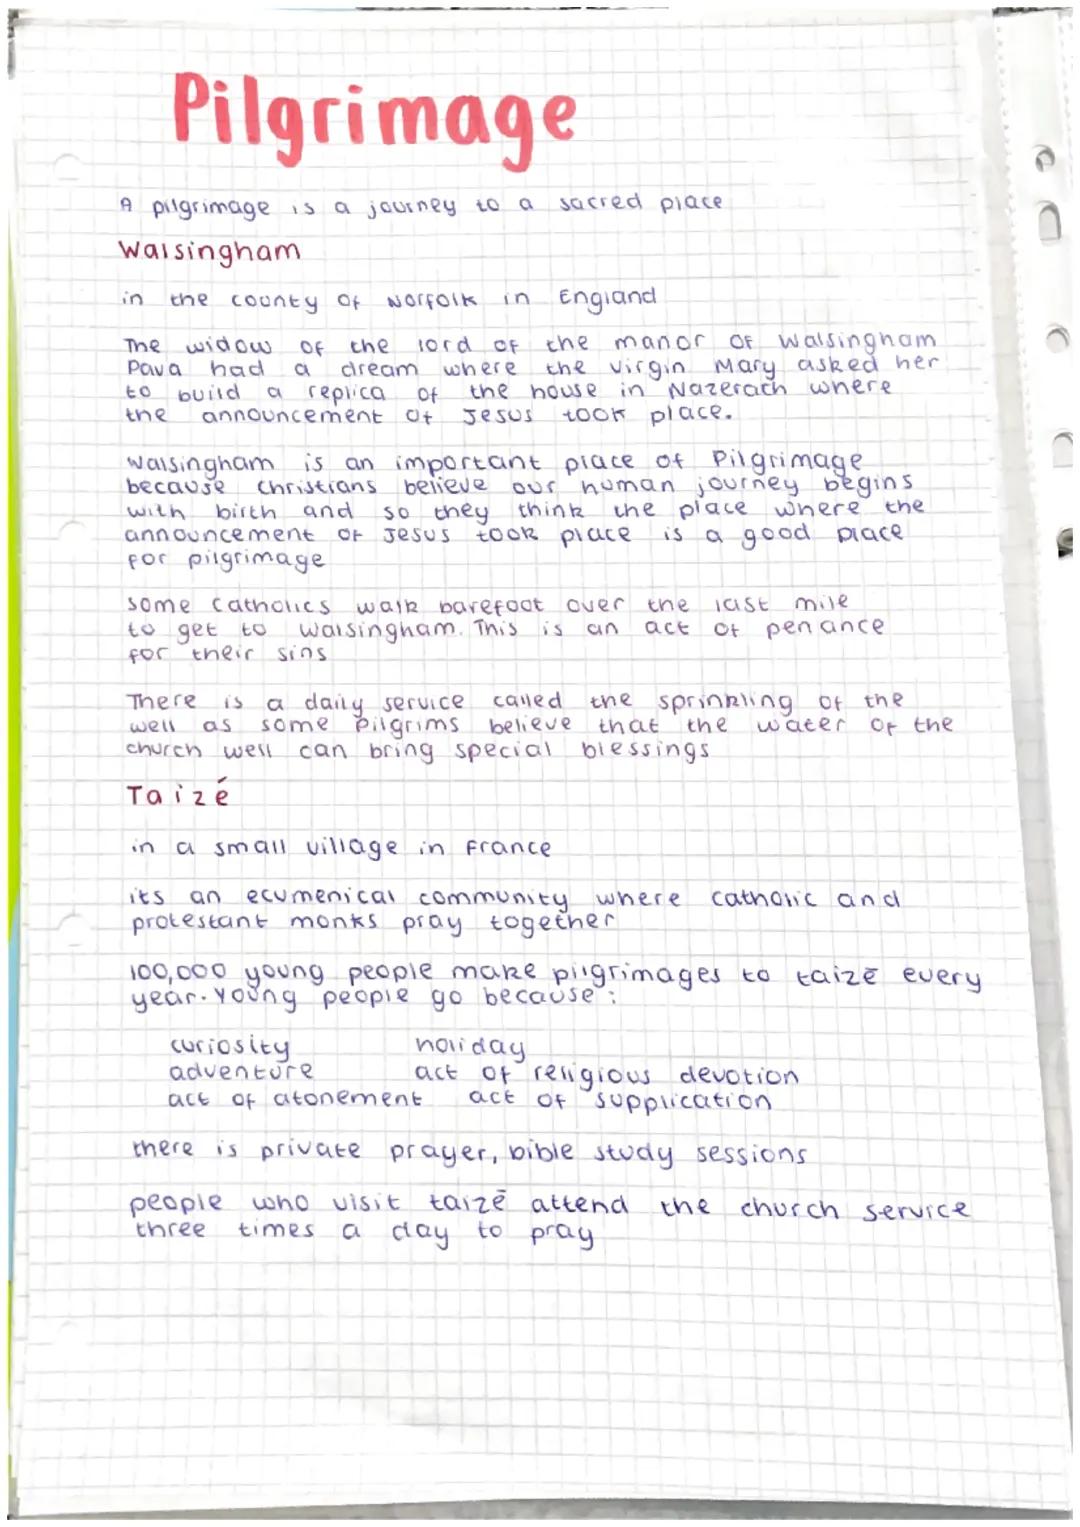 Pilgrimage
A pilgrimage is a journey to a sacred place
Walsingham
in the county of Norfolk in England
The widow of the lord of the manor of Walsingham
Pava had a dream where the virgin Mary asked her
to build a replica of the house in Nazerach where
the announcement of Jesus took place.
Walsingham is an important place of Pilgrimage
because Christians believe our human journey begins
with birth and so they think the place where the
announcement of Jesus took place is a good place
for pilgrimage
some Catholics walk barefoot over the last mile
to get to Walsingham. This is an act of penance
for their sins
There is a daily service called the sprinkling of the
well as some Pilgrims believe that the water of the
church well can bring special blessings
Taizé
in a small village in France
its an ecumenical community where catholic and
protestant monks pray together
100,000 young people make pilgrimages to taizē every
year. Young people go because :
curiosity holiday
adventure act of religious devotion
act of atonement act of supplication
there is private prayer, bible study sessions
people who visit taizē attend the church service
three times a day to pray